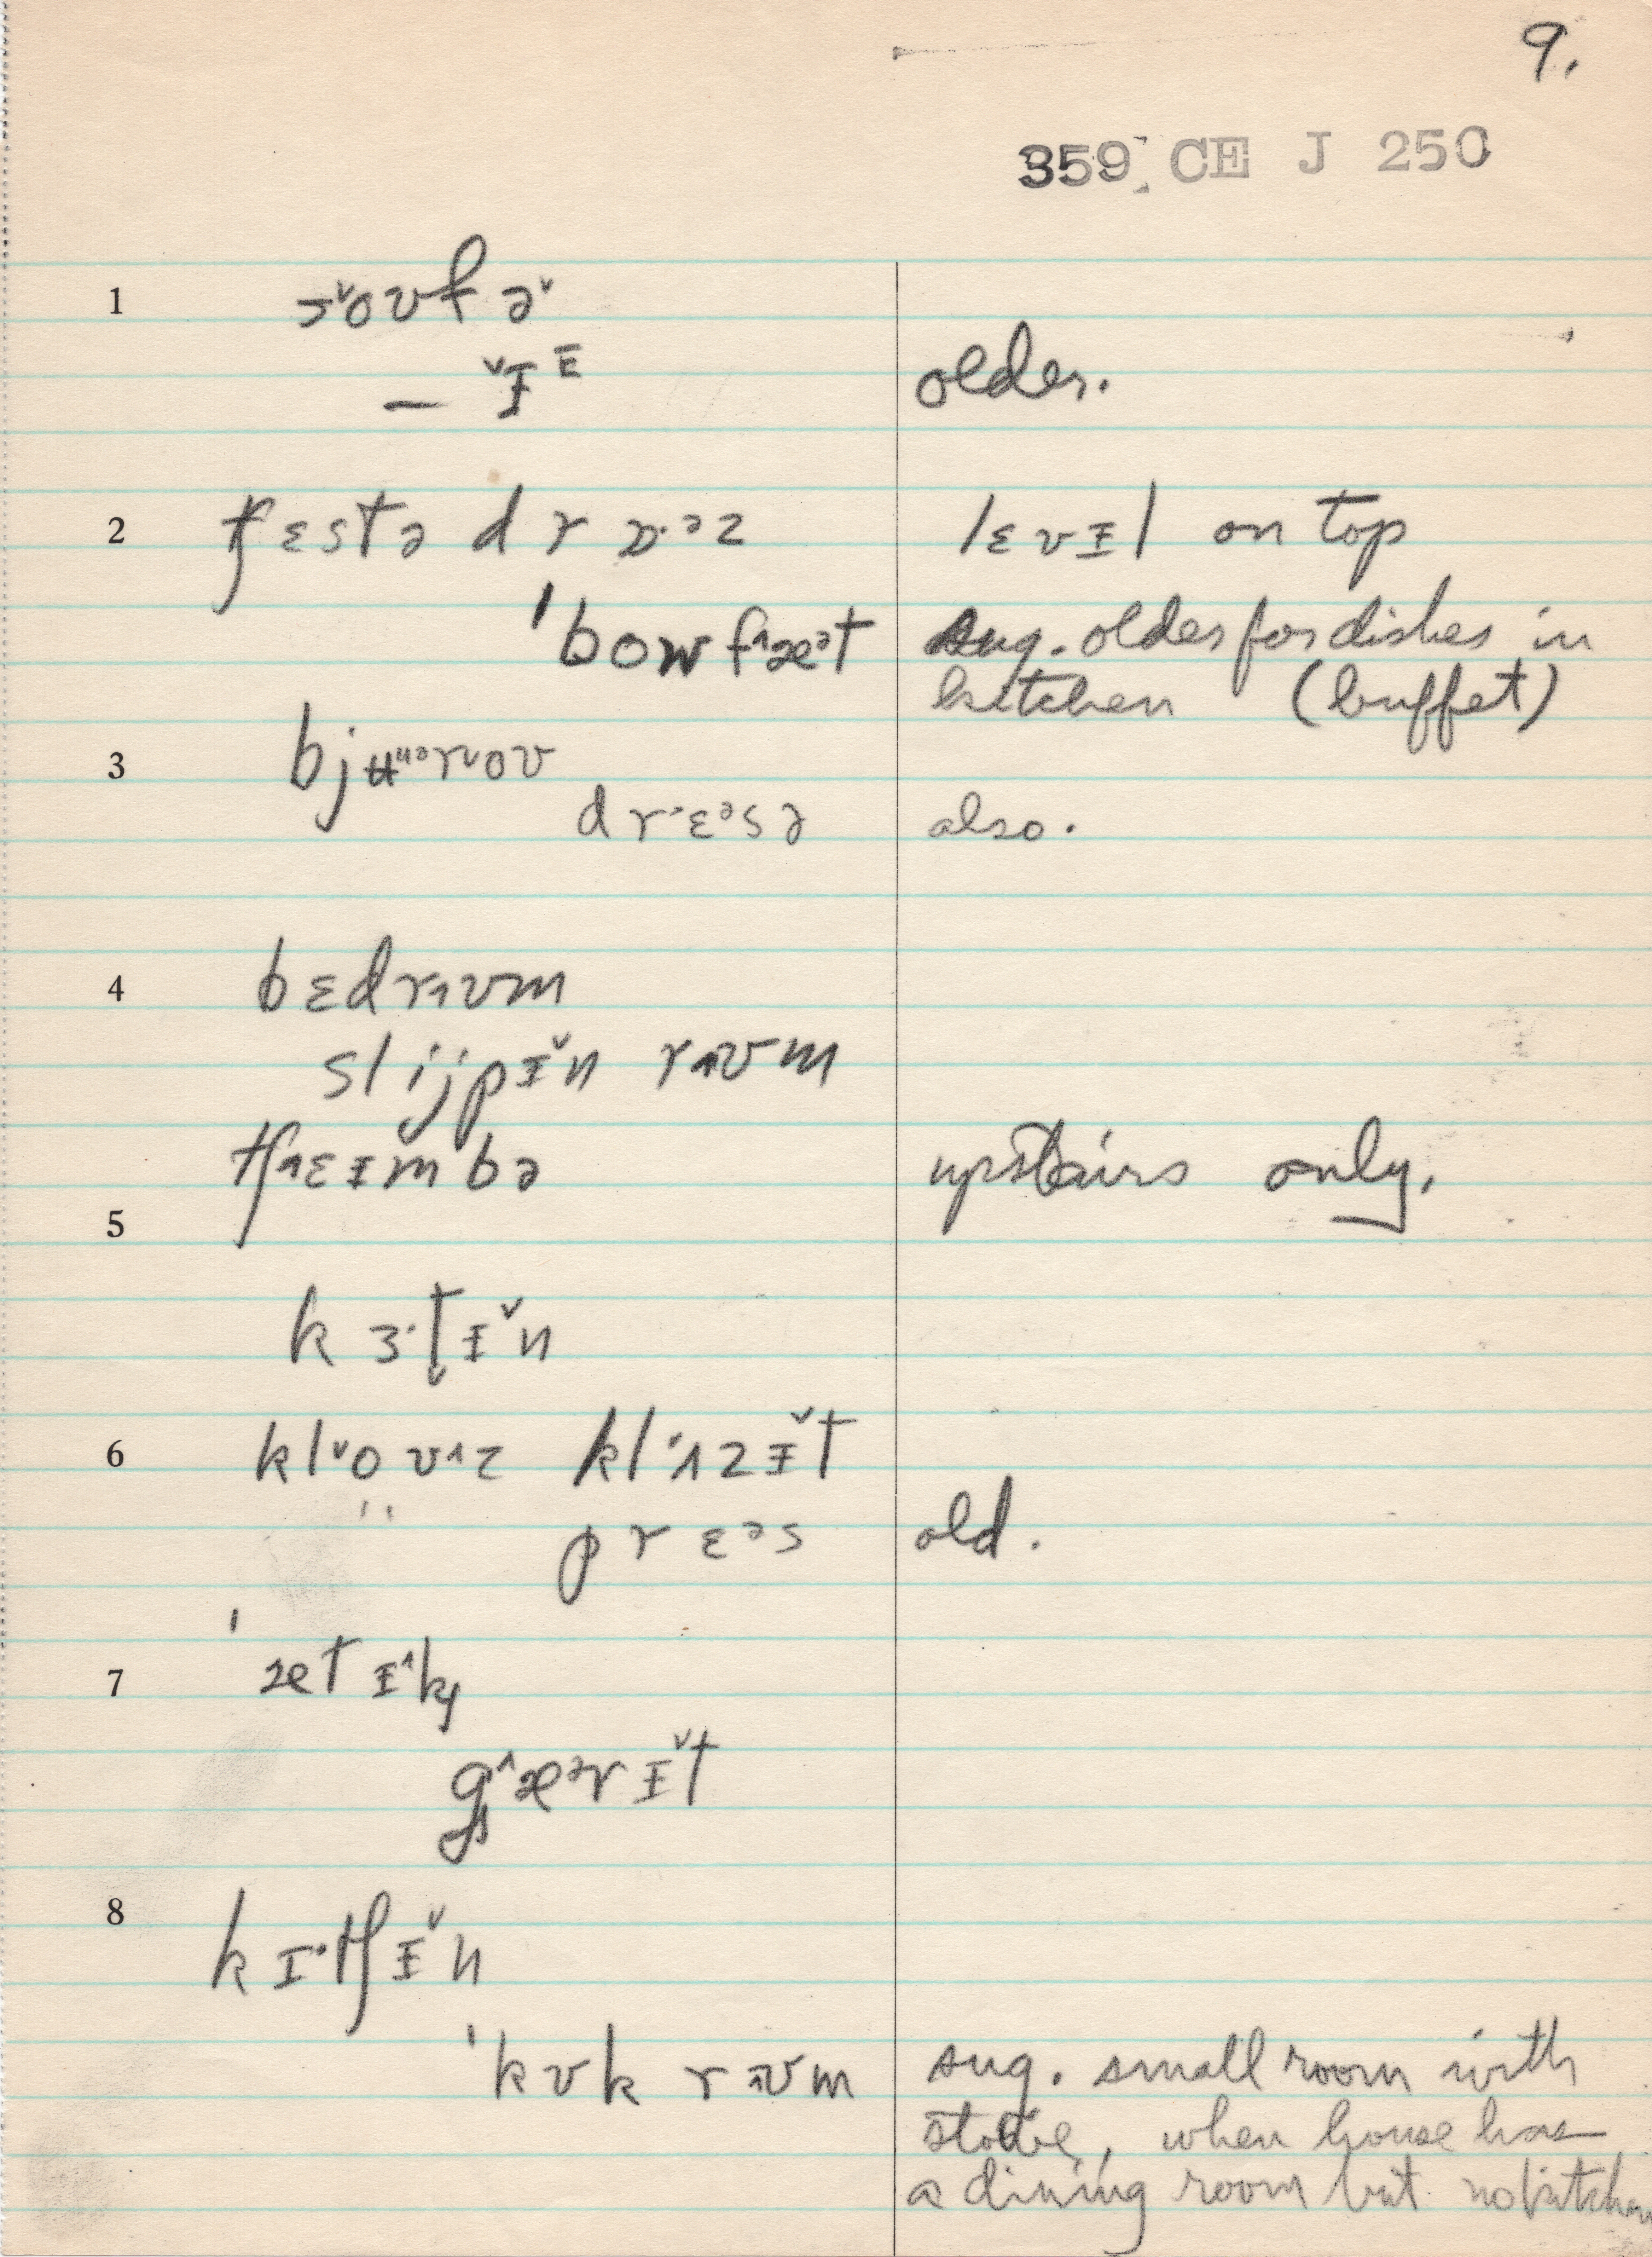 9.
359 CE J 250
1 sˇoʊfəˇ
– ˇᵻᴱ older.
2 tʃɛstə drɒ·ᵊz lɛvᵻl on top
'bowf^æᵊt sug. older for dishes in
kitchen (buffet)
3 bjʉᵘᵊrˇoʊ
drˑɛᵊsə also.
4 bɛdr˄ʊm
slijpᵻˇn r˄ʊm
tʃ˄ɛᵻmbə upstairs only.
5
kɜ·t̬ᵻˇn
6 klˇoʊ˄z klˈɑzᵻˇt
" prɛᵊs old.
7 'ætᵻ^k
g^æᵊrᵻˇt
8 kɪ·tʃᵻˇn
'kʊk r˄ʊm sug. small room with
stove, when house has
a dining room but no kitchen